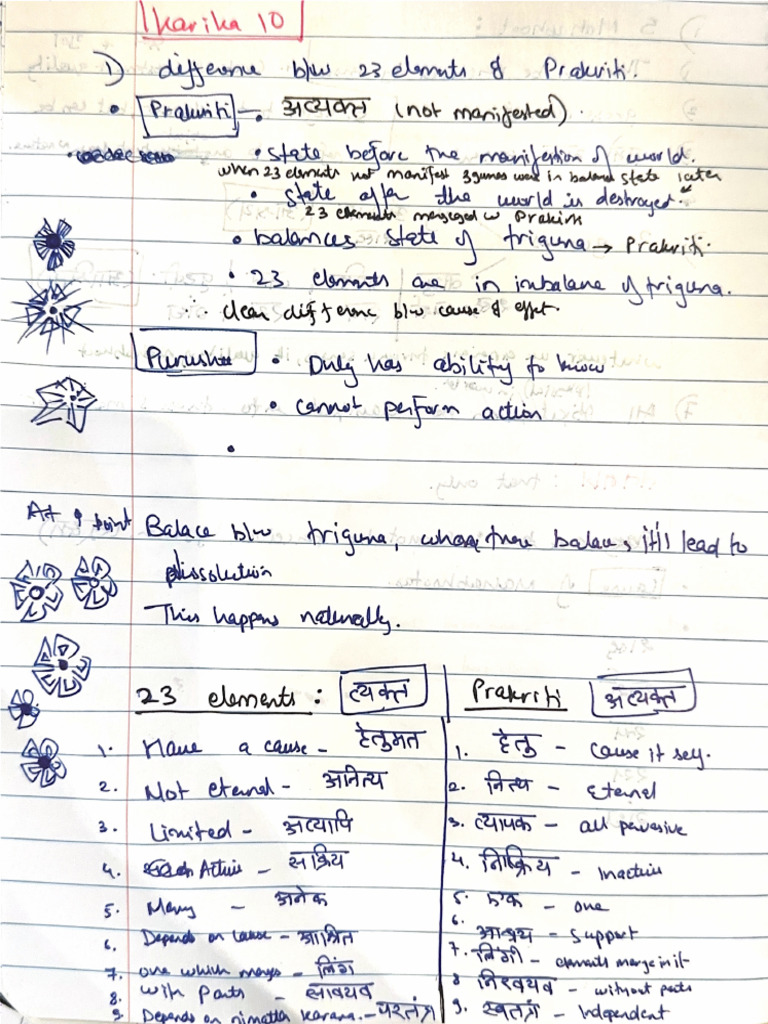 Karika 10
1) difference b/w 23 elements & Prakriti.
• Prakriti - • अव्यक्त (not manifested).
• state before the manifestion of world.
when 23 elements not manifest 3 gunas were in balance state later
• state after the world is destroyed.
23 elements merged w Prakirti
• balances state of triguna → Prakriti.
• 23 elements are in imbalane of triguna.
∴ clear differene b/w cause & effet.
Purusha • Only has ability to know
• cannot perform action
•
At 1 point Balace b/w triguna, when there balace, it'll lead to
dissolution
This happens naturally.
23 elements : व्यक्त | Prakriti अव्यक्त
1. Have a cause - हेतुमत | 1. हेतु - cause it self.
2. Not eternal - अनित्य | 2. नित्य - Eternal
3. Limited - अव्यापि | 3. व्यापक - all pervasive
4. Active - सक्रिय | 4. निष्क्रिय - Inactive
5. Many - अनेक | 5. एक - one
6. Depends on cause - आश्रित | 6. आश्रय - Support
7. one which merges - लिंग | 7. लिंगी - elements merge in it
8. with Parts - सावयव | 8 निरवयव - without parts
9. Depends on nimatta karana - परतंत्र | 9. स्वतंत्र - Independent